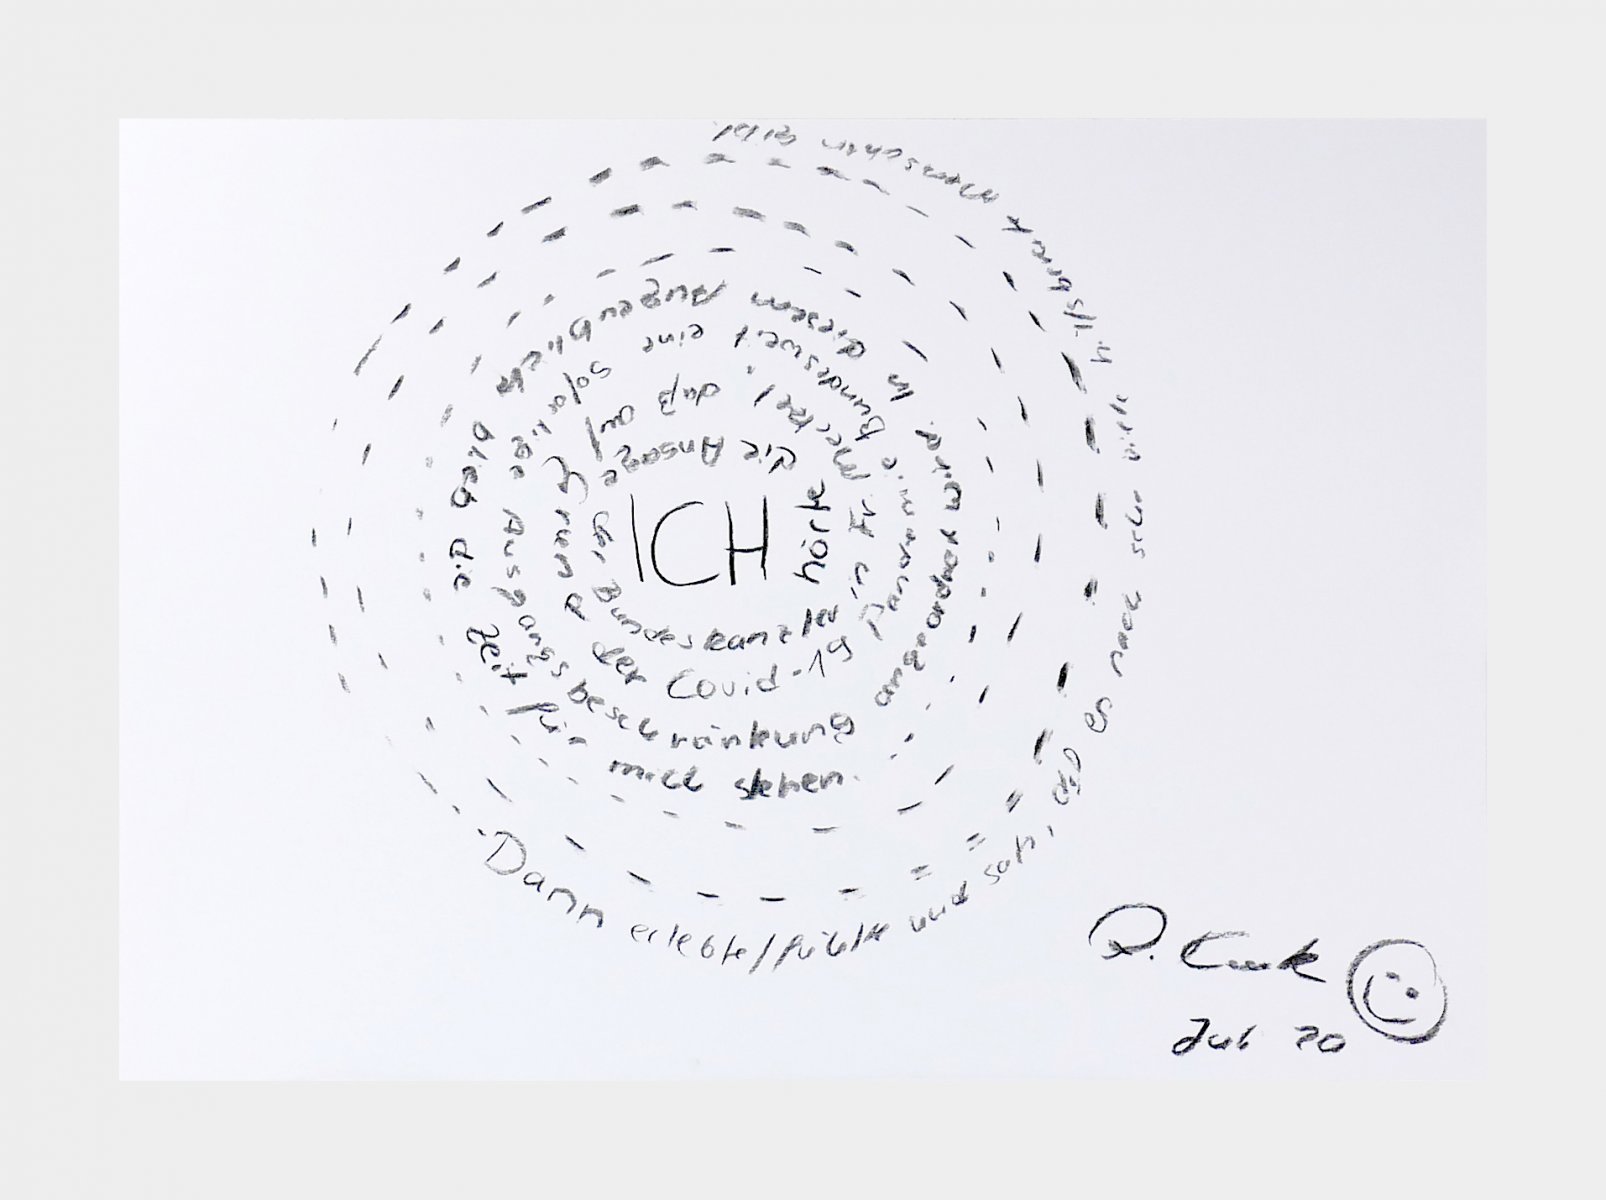 ICH hörte die Ansage der Bundeskanzlerin Fr. Merkel, daß auf Grund der Covid-19 Pandemie Bundesweit eine sofortige Ausgangsbeschränkung angeordnet wird. In diesem Augenblick blieb die Zeit für mich stehen.
Dann erlebte/fühlte und sah, daß es noch sehr viele Menschen gibt.
Juli 20